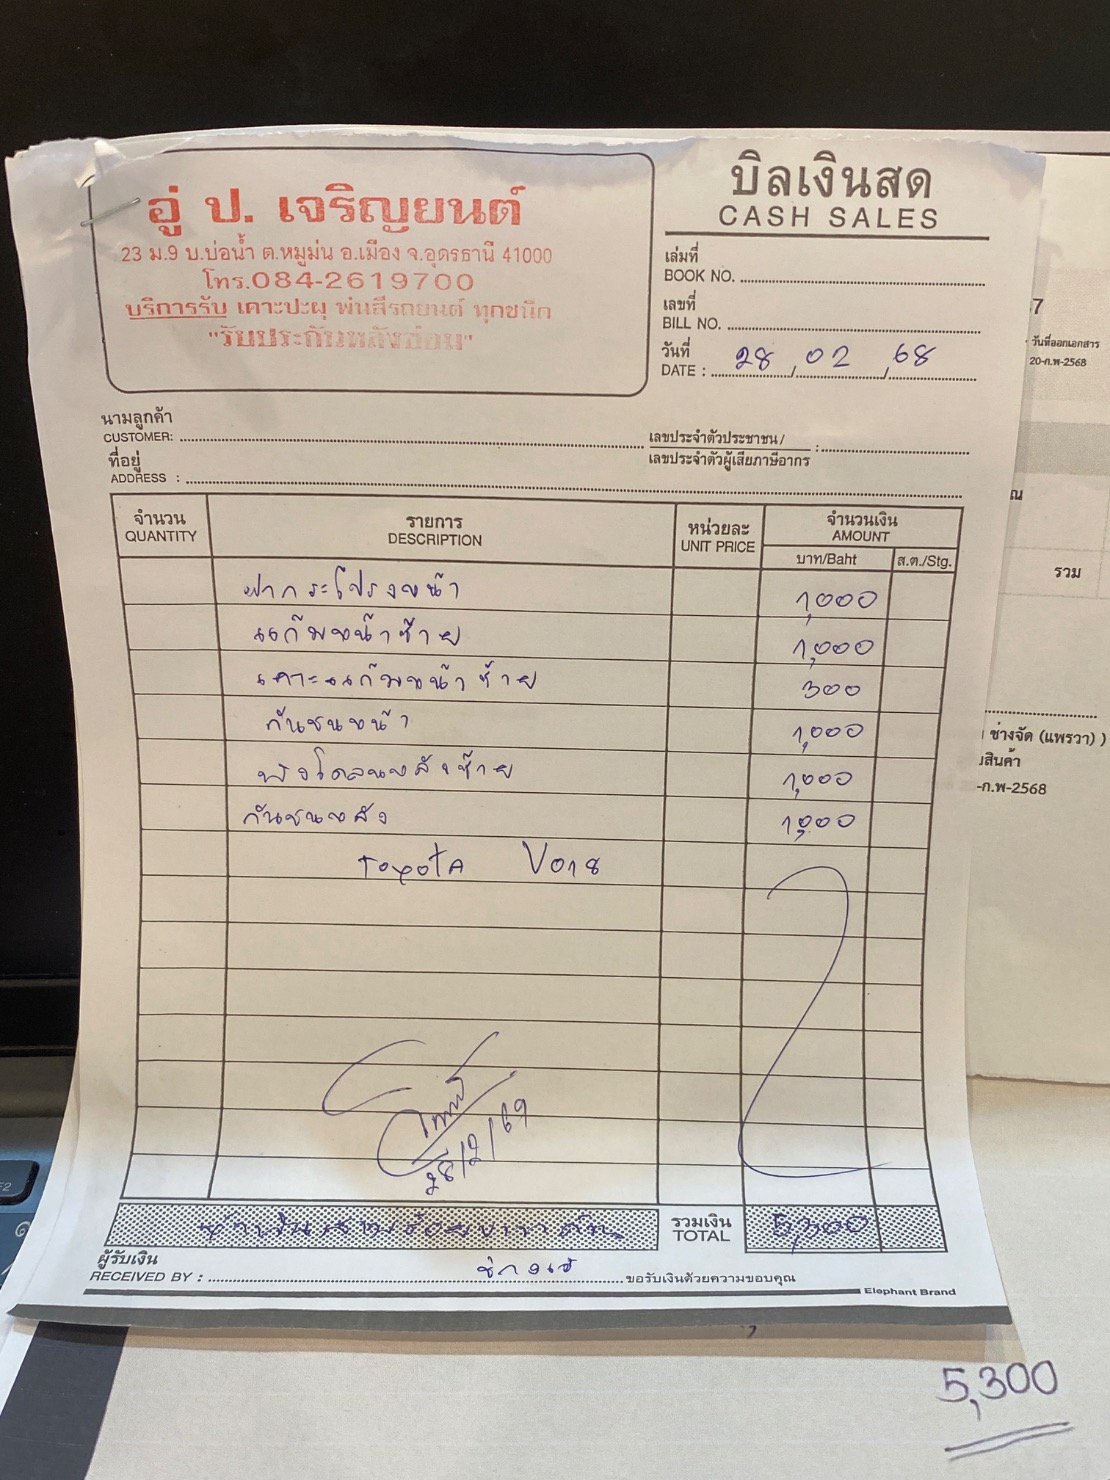 อู่ ป. เจริญยนต์
23 ม.9 บ.บ่อน้ำ ต.หมูม่น อ.เมือง จ.อุดรธานี 41000
โทร.084-2619700
บริการรับ เคาะปะผุ พ่นสีรถยนต์ ทุกชนิด
"รับประกันหลังซ่อม"
บิลเงินสด
CASH SALES
เล่มที่
BOOK NO.
เลขที่
BILL NO.
วันที่
DATE : 28 / 02 / 68
นามลูกค้า
CUSTOMER:
เลขประจำตัวประชาชน/
เลขประจำตัวผู้เสียภาษีอากร :
ที่อยู่
ADDRESS :
จำนวน รายการ หน่วยละ จำนวนเงิน
QUANTITY DESCRIPTION UNIT PRICE AMOUNT
บาท/Baht ส.ต./Stg.
ฝากระโปรงหน้า 1,000
แก้มหน้าซ้าย 1,000
เคาะแก้มหน้าซ้าย 300
กันชนหน้า 1,000
บังโคลนหลังซ้าย 1,000
กันชนหลัง 1,000
Toyota V018
28/2/69
ห้าพันสามร้อยบาทถ้วน รวมเงิน TOTAL 5,300
ผู้รับเงิน
RECEIVED BY : ขอรับเงินด้วยความขอบคุณ
Elephant Brand
7
วันที่ออกเอกสาร
20-ก.พ-2568
ณ
รวม
ช่างจัด (แพรวา) )
สินค้า
-ก.พ-2568
F2
5,300